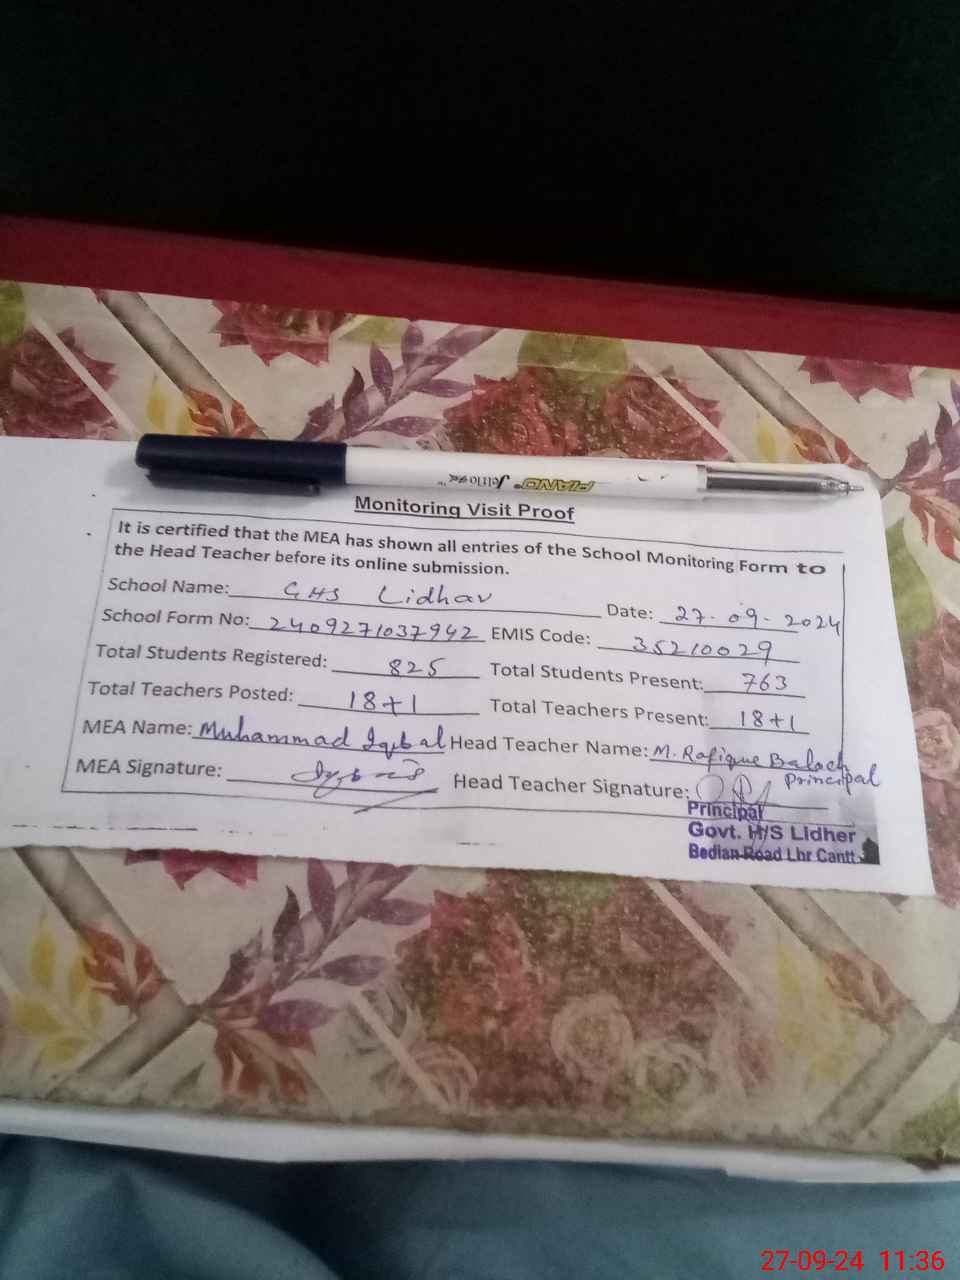 PIANO®
Monitoring Visit Proof
It is certified that the MEA has shown all entries of the School Monitoring Form to
the Head Teacher before its online submission.
School Name: GHS Lidhar Date: 27-09-2024
School Form No: 2409271037942 EMIS Code: 35210029
Total Students Registered: 825 Total Students Present: 763
Total Teachers Posted: 18+1 Total Teachers Present: 18+1
MEA Name: Muhammad Iqbal Head Teacher Name: M. Rafique Baloch
Principal
MEA Signature: Head Teacher Signature:
Principal
Govt. H/S Lidher
Bedian Road Lhr Cantt.
27-09-24 11:36